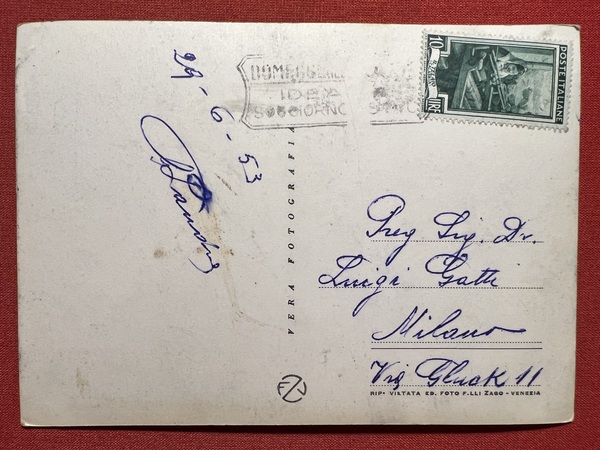 29-6-53
VERA FOTOGRAFIA
POSTE ITALIANE
10
LIRE
Preg Sig. Dr.
Luigi Gatti
Milano
Via Gluck 11
RIP. VIETATA ED. FOTO F.LLI ZAGO - VENEZIA